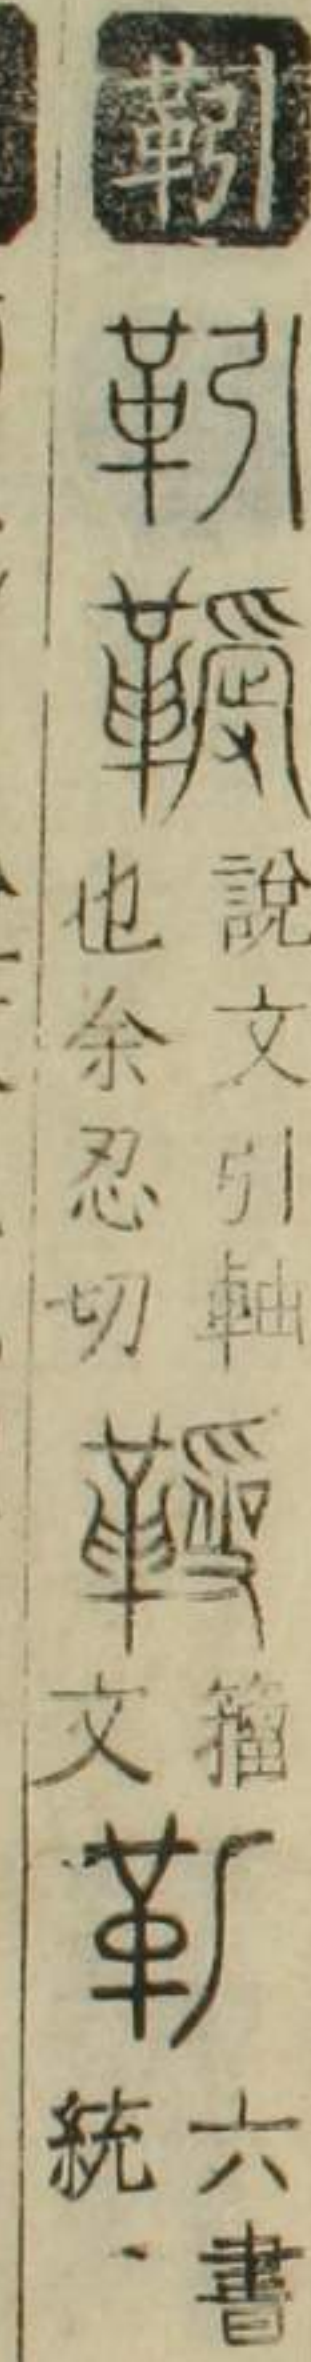 靷
靷
說文引軸
也余忍切
籀
文
六書
統